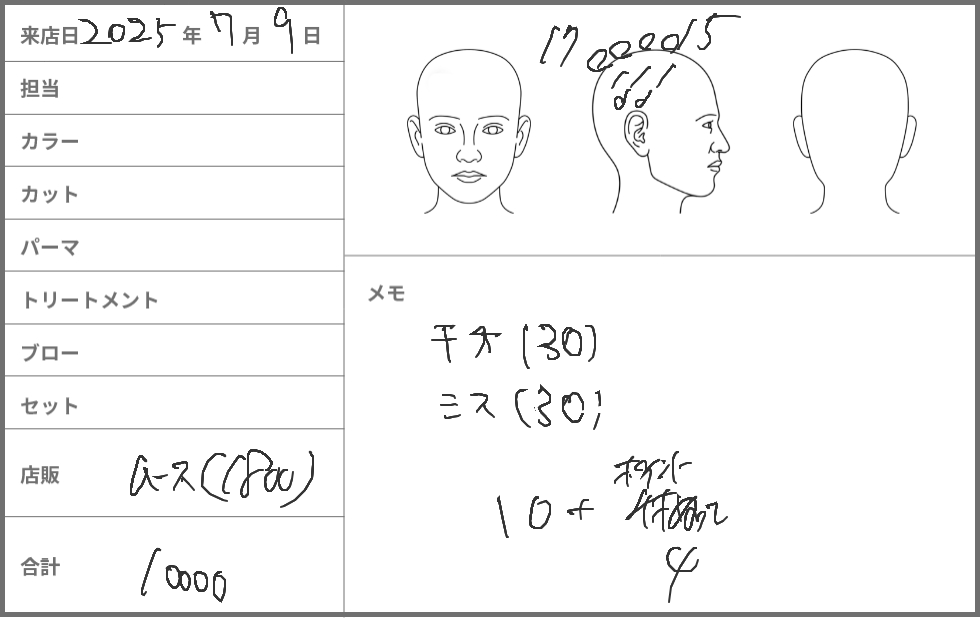 来店日 2025 年 7 月 9 日
担当
カラー
カット
パーマ
トリートメント
ブロー
セット
店販 ムース(1800)
合計 10000
17 15
メモ
(30)
ミス (30)
ポイント
10+
4